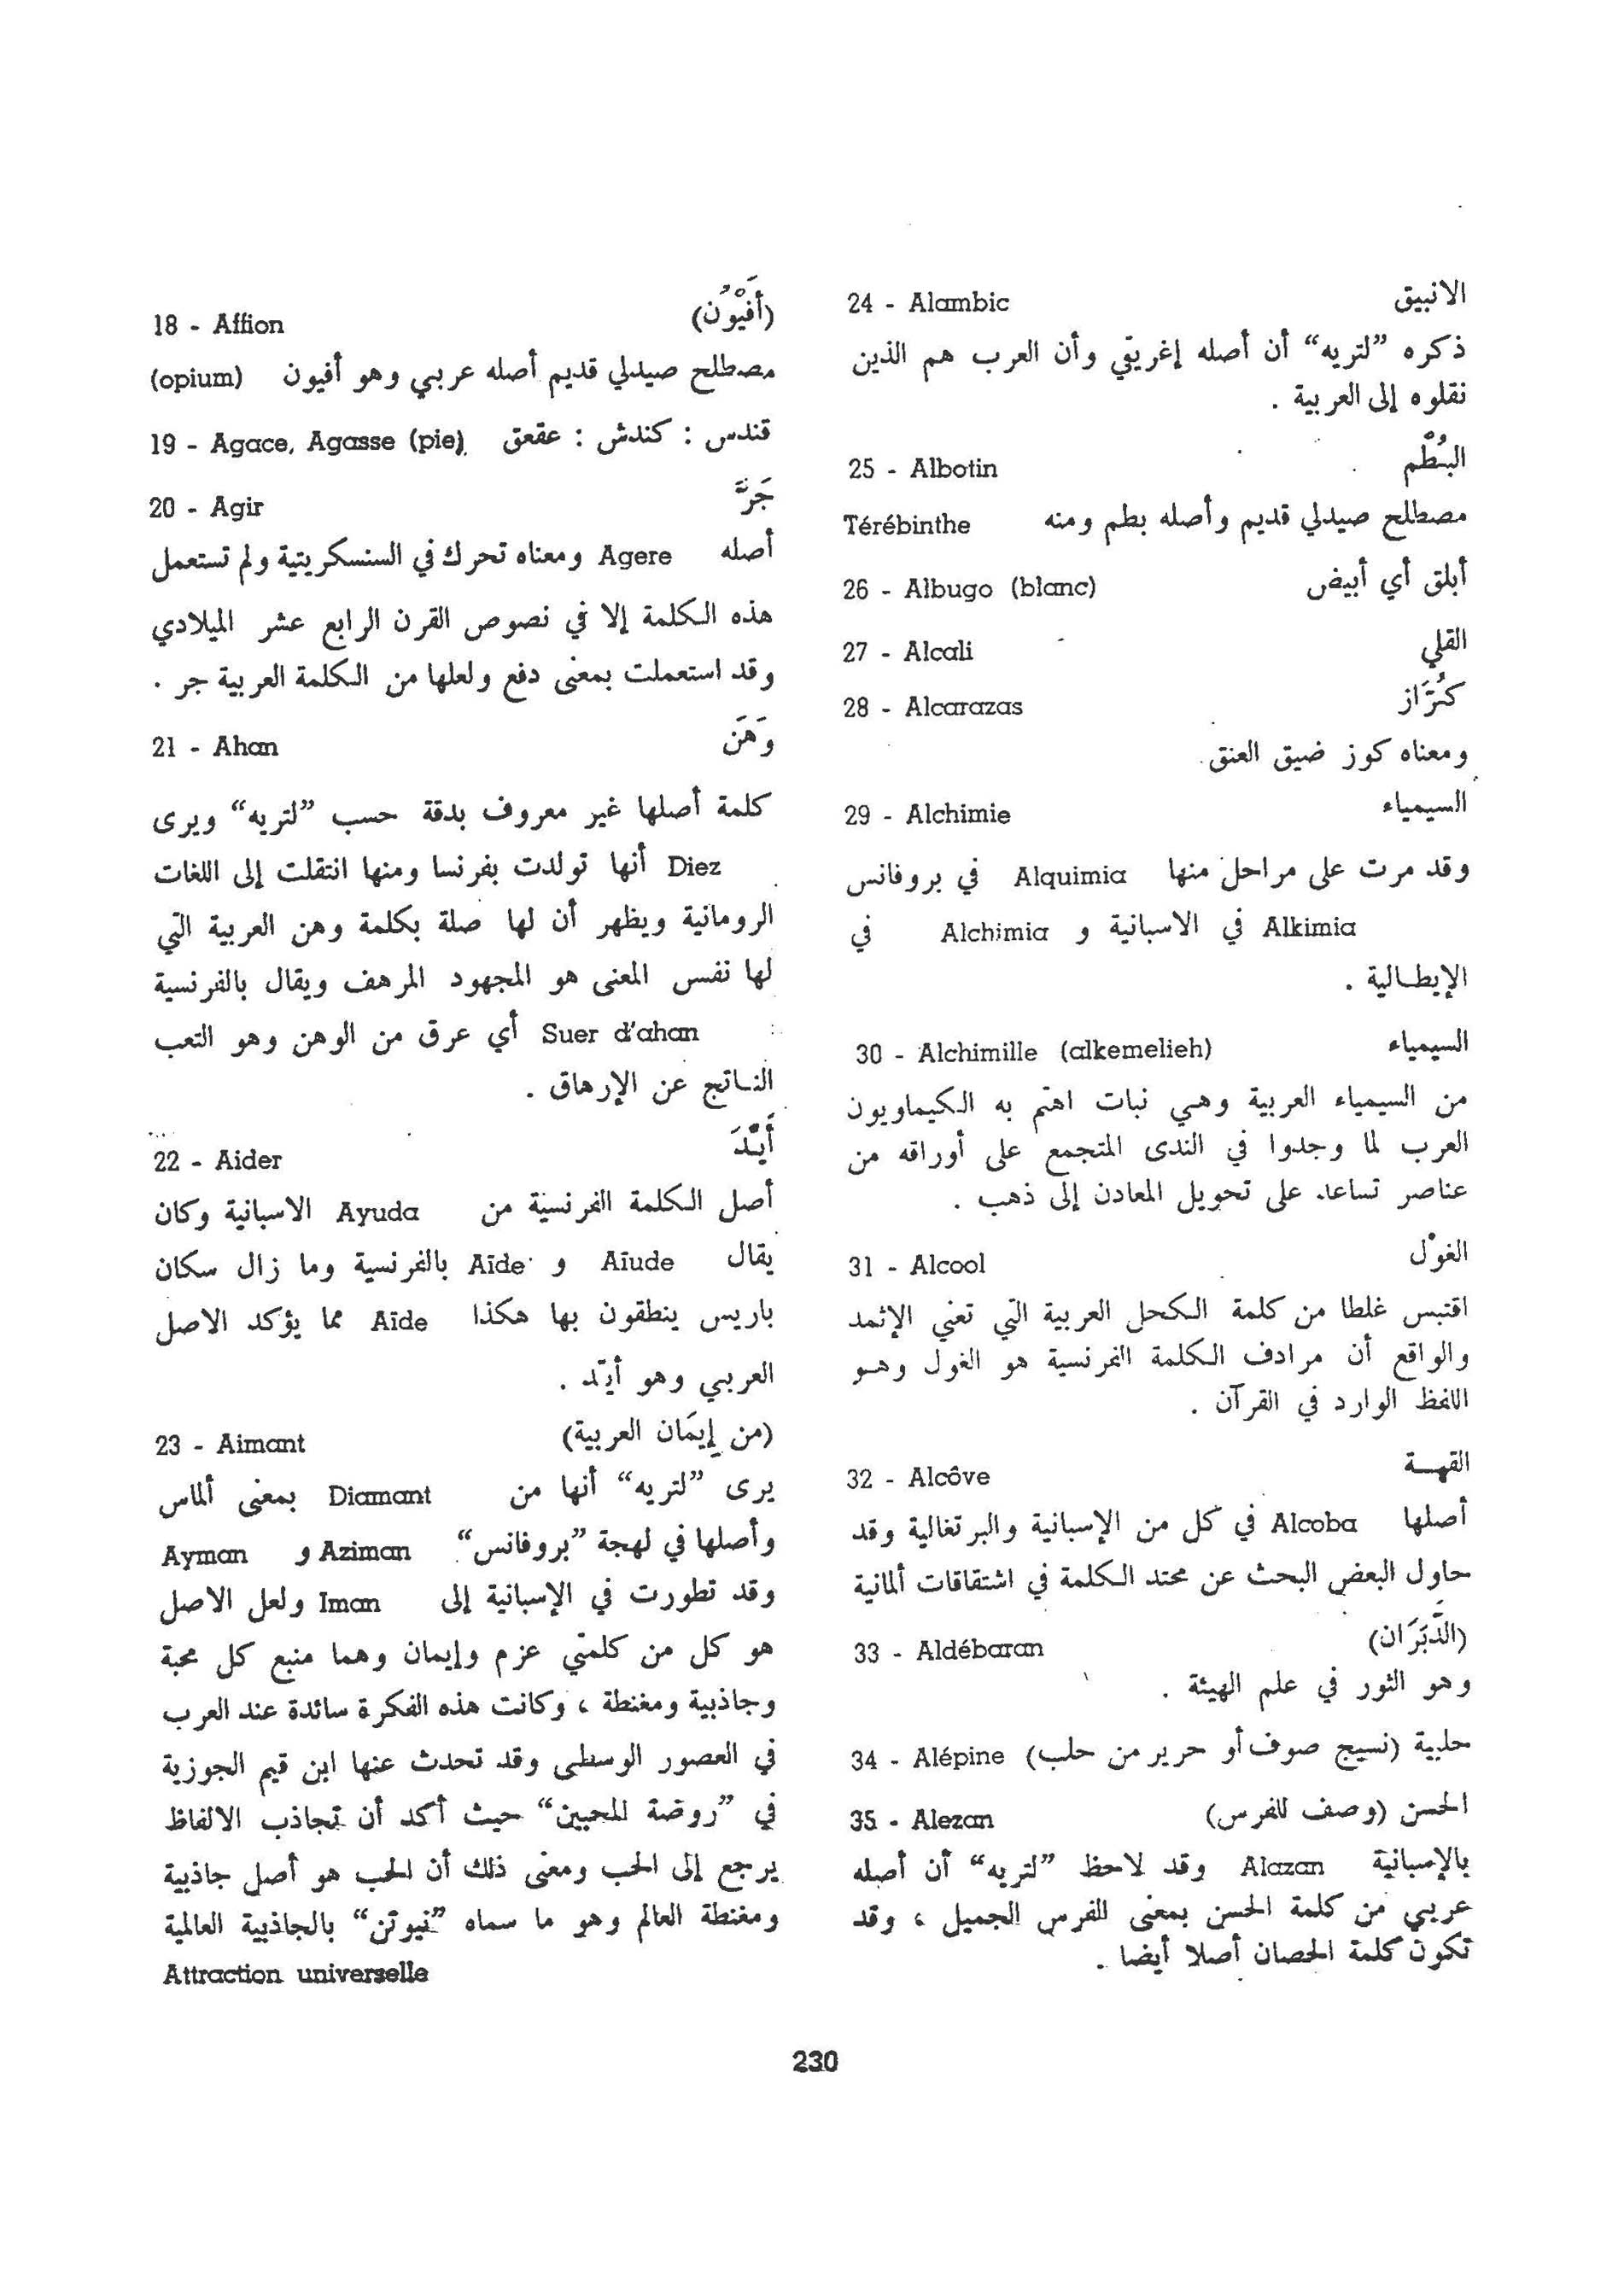 18 - Affion (أَفْيُوْن)
مصطلح صيدلي قديم أصله عربي وهو أفيون (opium)
19 - Agace, Agasse (pie) قندس : كندش : عقعق
20 - Agir جَرَّ
أصله Agere ومعناه تحرك في السنسكريتية ولم تستعمل
هذه الكلمة إلا في نصوص القرن الرابع عشر الميلادي
وقد استعملت بمعنى دفع ولعلها من الكلمة العربية جر .
21 - Ahan وَهَنَ
كلمة أصلها غير معروف بدقة حسب ”لتريه“ ويرى
Diez أنها تولدت بفرنسا ومنها انتقلت إلى اللغات
الرومانية ويظهر أن لها صلة بكلمة وهن العربية التي
لها نفس المعنى هو المجهود المرهف ويقال بالفرنسية
Suer d'ahan أي عرق من الوهن وهو التعب
الناتج عن الإرهاق .
22 - Aider أَيَّدَ
أصل الكلمة الفرنسية من Ayuda الاسبانية وكان
يقال Aïude و Aïde بالفرنسية وما زال سكان
باريس ينطقون بها هكذا Aïde مما يؤكد الاصل
العربي وهو أيّد .
23 - Aimant (من إِيمَان العربية)
يرى ”لتريه“ أنها من Diamant بمعنى ألماس
وأصلها في لهجة ”بروفانس“ Aziman و Ayman
وقد تطورت في الإسبانية إلى Iman ولعل الاصل
هو كل من كلمتي عزم وإيمان وهما منبع كل محبة
وجاذبية ومغنطة ، وكانت هذه الفكرة سائدة عند العرب
في العصور الوسطى وقد تحدث عنها ابن قيم الجوزية
في ”روضة المحبين“ حيث أكد أن تجاذب الالفاظ
يرجع إلى الحب ومعنى ذلك أن الحب هو أصل جاذبية
ومغنطة العالم وهو ما سماه ”نيوتن“ بالجاذبية العالمية
Attraction universelle
24 - Alambic الانبيق
ذكره ”لتريه“ أن أصله إغريقي وأن العرب هم الذين
نقلوه إلى العربية .
25 - Albotin البُطْم
مصطلح صيدلي قديم وأصله بطم ومنه Térébinthe
26 - Albugo (blanc) أبلق أي أبيض
27 - Alcali القلي
28 - Alcarazas كُرَّاز
ومعناه كوز ضيق العنق
29 - Alchimie السيمياء
وقد مرت على مراحل منها Alquimia في بروفانس
Alkimia في الاسبانية و Alchimia في
الإيطالية .
30 - Alchimille (alkemelieh) السيمياء
من السيمياء العربية وهي نبات اهتم به الكيماويون
العرب لما وجدوا في الندى المتجمع على أوراقه من
عناصر تساعد على تحويل المعادن إلى ذهب .
31 - Alcool الغوْل
اقتبس غلطا من كلمة الكحل العربية التي تعني الإثمد
والواقع أن مرادف الكلمة الفرنسية هو الغول وهو
اللفظ الوارد في القرآن .
32 - Alcôve القهة
أصلها Alcoba في كل من الإسبانية والبرتغالية وقد
حاول البعض البحث عن محتد الكلمة في اشتقاقات ألمانية
33 - Aldébaran (الدَّبَرَان)
وهو الثور في علم الهيئة .
34 - Alépine حلبية (نسيج صوف أو حرير من حلب)
35 - Alezan الحسن (وصف للفرس)
بالإسبانية Alazan وقد لاحظ ”لتريه“ أن أصله
عربي من كلمة الحسن بمعنى الفرس الجميل ، وقد
تكون كلمة الحصان أصلا أيضا .
230